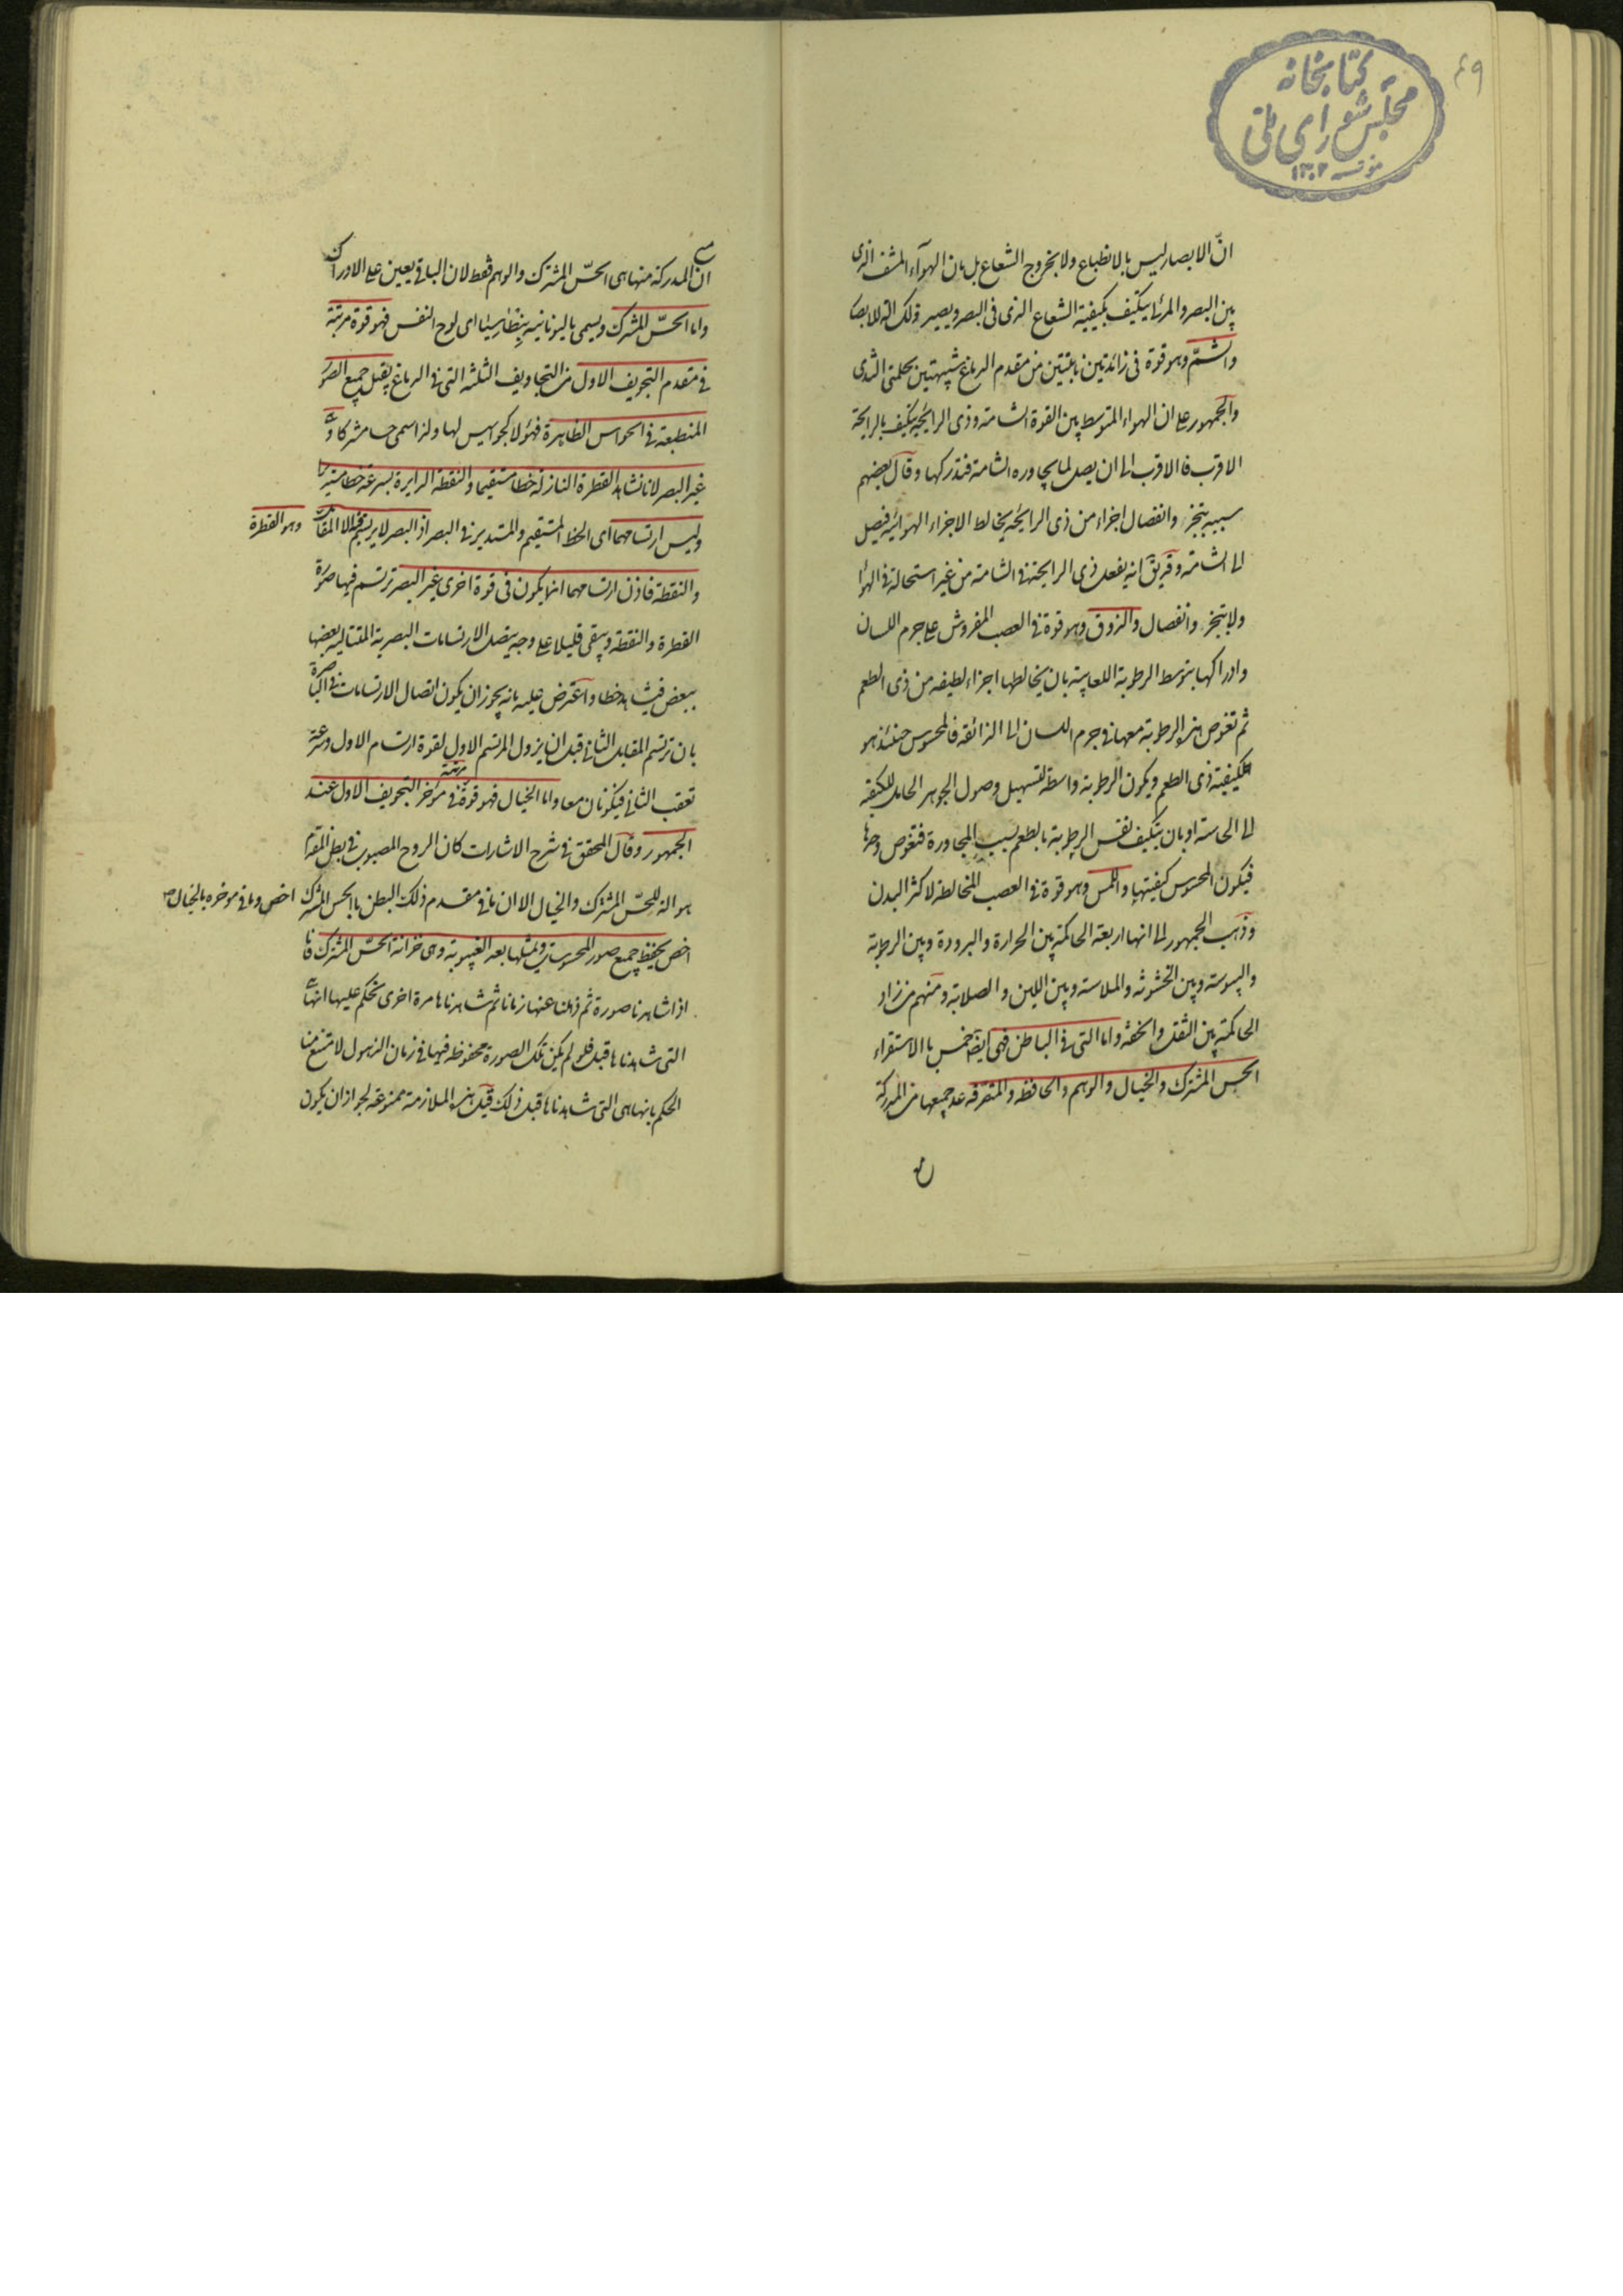 ٤٩
کتابخانه
مجلس شورای ملی
مؤسسه ۱۳۰۲
انّ الابصار ليس بالانطباع ولا بخروج الشعاع بل بان الهوآء المشف الذى
بين البصر والمرئى يتكيف بكيفية الشعاع الذى فى البصر ويصير ذلك الة للابصا
والشمّ وهو قوة فى زائدتين نابتتين من مقدم الدماغ شبيهتين بحلمتى الثدى
والجمهور على ان الهواء المتوسط بين القوة الشامة وذى الرايحة يتكيف بالرايحة
الاقرب فالاقرب الى ان يصل لما يجاوره الشامة فتدركها وقال بعضهم
سببه بتبخر وانفصال اجزاء من ذى الرائحة يخالط الاجزاء الهوائية فيصل
الى الشامة وقد يق انه بفعل ذى الرايحة فى الشامة من غير استحالة فى الهوا
ولا بتبخر وانفصال والذوق وهو قوة فى العصب المفروش على جرم اللسان
وادراكها بتوسط الرطوبة اللعابية بان يخالطها اجزاء لطيفه من ذى الطعم
ثم تغوص هذه الرطوبة معها فى جرم اللسان الى الذائقة فالمحسوس حينئذ هو
كيفية ذى الطعم ويكون الرطوبة واسطة لتسهيل وصول الجوهر الحامل للكيفية
الى الحاسة او بان يتكيف نفس الرطوبة بالطعم بسبب المجاورة فتغوص وحدها
فيكون المحسوس كيفيتها واللمس وهو قوة فى العصب المخالطة لاكثر البدن
وذهب الجمهور الى انها اربعة الحاكمة بين الحرارة والبرودة وبين الرطوبة
واليبوسة وبين الخشونة والملاسة وبين اللين والصلابة ومنهم من زاد
الحاكمة بين الثقل والخفة واما التى فى الباطن فهى ايضا خمس بالاستقراء
الحس المشترك والخيال والوهم والحافظه والمتصرفة عد جميعها من المدركة
ان المدركة منها هى الحسّ المشترك والوهم فقط لان الباقى يعين على الادراك
واما الحسّ المشترك ويسمى باليونانية بنطاسيا اى لوح النفس فهو قوة مرتبة
فى مقدم التجويف الاول من التجاويف الثلثة التى فى الدماغ يقبل جميع الصور
المنطبعة فى الحواس الظاهرة فهؤلا كجواسيس لها ولذا سمى حسا مشتركا و
غير البصر لانا نشاهد القطرة النازلة خطا مستقيما والنقطة الدايرة بسرعة خطا مستديرا
وليس ارتسامهما اى الخط المستقيم والمستدير فى البصر اذ البصر لا يرتسم فيه الا المقابل وهو القطرة
والنقطة فاذن ارتسامهما انما يكون فى قوة اخرى غير البصر ترتسم فيها صورة
القطرة والنقطة ويبقى قليلا على وجه يتصل الارتسامات البصرية المتتالية بعضها
ببعض فيشاهد خطا واعترض عليه بانه يجوز ان يكون اتصال الارتسامات فى الباصرة
بان ترتسم المقابل الثانى قبل ان يزول المرتسم الاول لقوة ارتسام الاول وسرعة
تعقب الثانى فيكونان معا واما الخيال فهو قوة مرتبة فى مؤخر التجويف الاول عند
الجمهور وقال المحقق فى شرح الاشارات كان الروح المصبوب فى بطن المقدم
هو الة للحسّ المشترك والخيال الا ان ما فى مقدم ذلك البطن بالحس المشترك اخص وما فى موخره بالخيال
اخص يحفظ جميع صور المحسوسات ويمثلها بعد الغيبوبة وهى خزانة الحسّ المشترك فانا
اذا شاهدنا صورة ثم ذهلنا عنها زمانا ثم شاهدناها مرة اخرى نحكم عليها انها
التى شاهدناها قبل فلو لم يكن تلك الصورة محفوظة فيها فى زمان الذهول لامتنع منا
الحكم بانها هى التى شاهدناها قبل ذلك قيل هذه الملازمة ممنوعة لجواز ان يكون